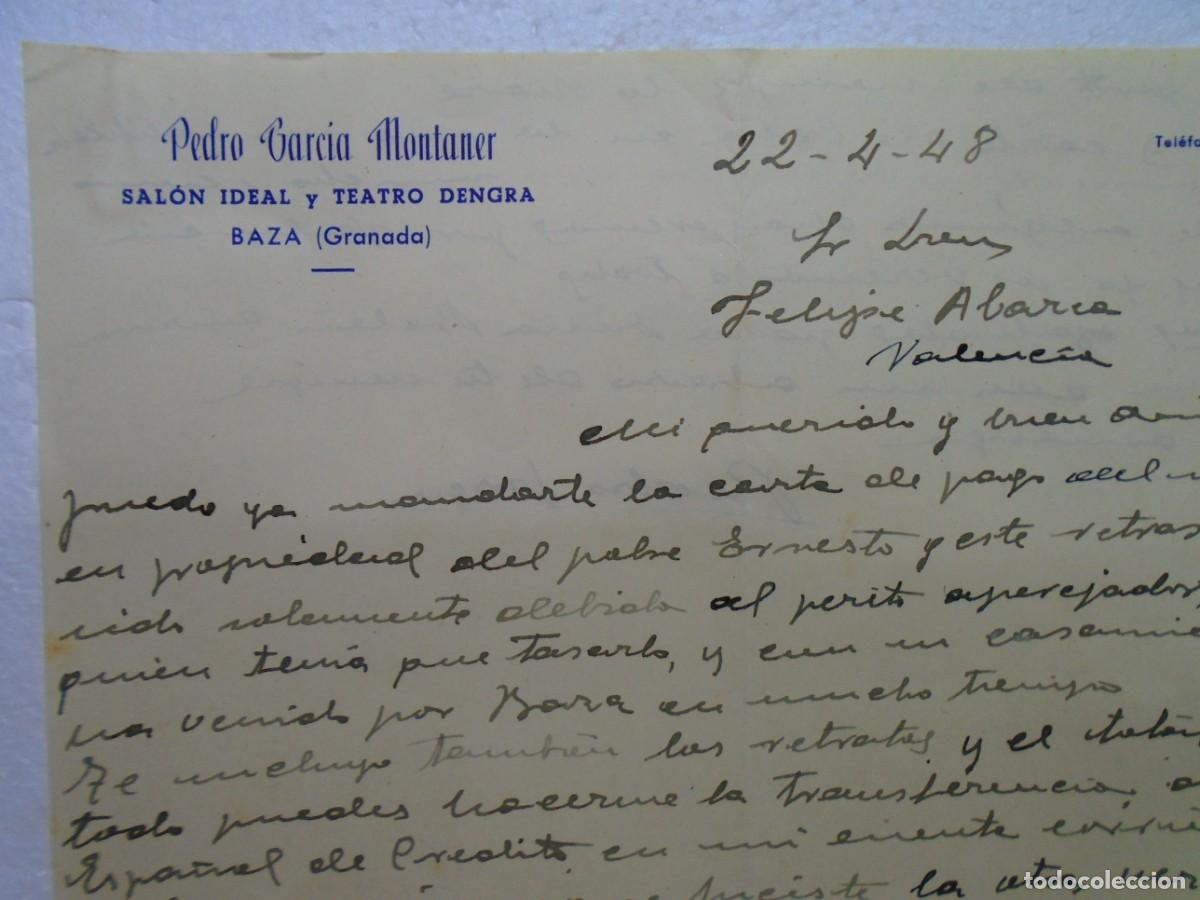 Pedro Garcia Montaner
SALÓN IDEAL y TEATRO DENGRA
BAZA (Granada)
Teléfo
22-4-48
Sr
Felipe Abarca
Valencia
Mi querido y buen
puedo ya mandarte la carta de pago del
en propiedad del pobre Ernesto y este retras
sido solamente debido al perito aparejador,
quien tenia que tasarlo, y con su casamie
no venido por Baza en mucho tiempo
Te incluyo también los retratos y el talón,
todo puedes hacerme la transferencia a
Español de Credito en mi cuenta corrie
hiciste la otra vez
todocoleccion